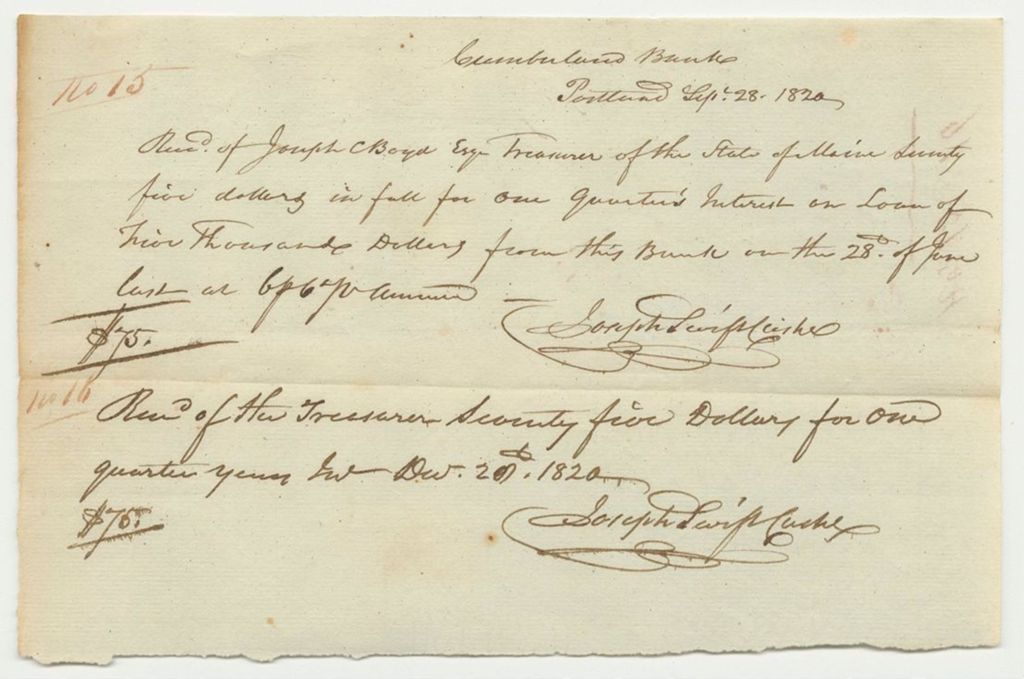 Cumberland Bank
No 15
Portland Sept. 28. 1820
Recd. of Joseph C Boyd Esqr Treasurer of the State of Maine Seventy
five dollars in full for one Quarter's Interest on Loan of
Five Thousand Dollars from this Bank on the 28th. of June
last at 6 pr Ct pr Annum
$75.
Joseph Swift Cashr
No 16
Recd of the Treasurer Seventy five Dollars for one
quarter years Int Dec. 28th. 1820
$75.
Joseph Swift Cashr